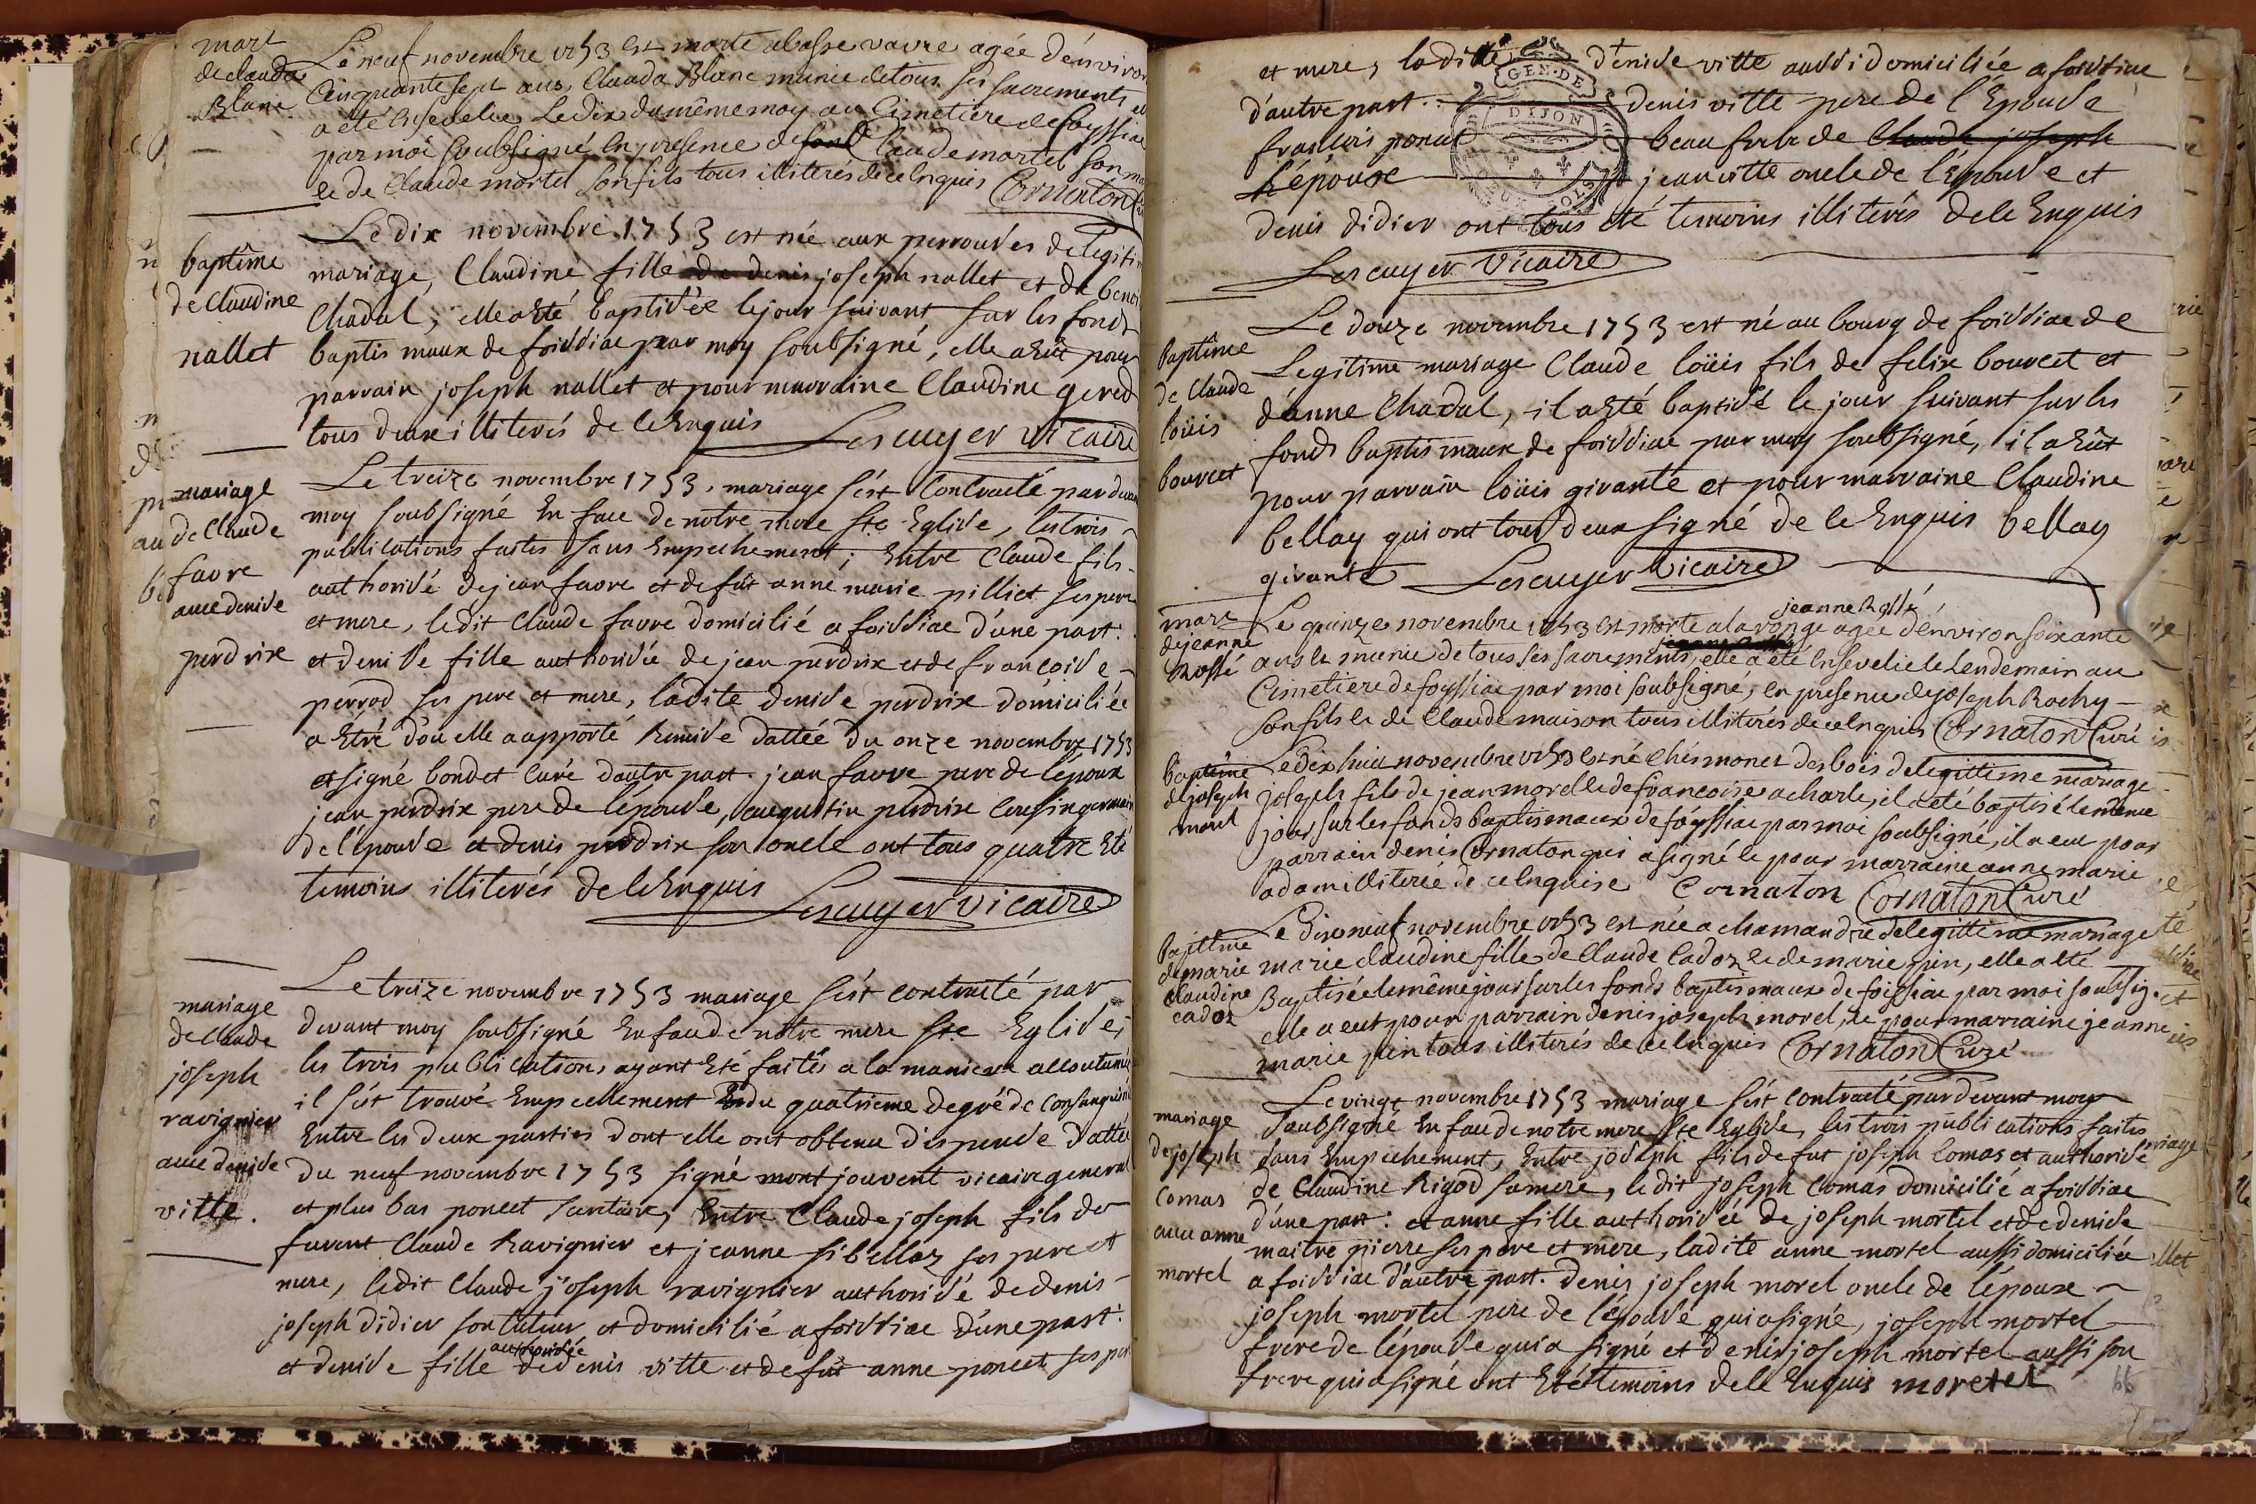 mort
de clauda
Blanc
Le neuf novembre 1753 est morte a basse vavre agée d'environ
Cinquante sept ans, Clauda Blanc munie de tous ses sacrements et
a été Ensevelie Le dix du même moy au Cimetiere de foyssiac
par moi soubsigné En presence de Claude mortel son
et de Claude mortel son fils tous illiterés de ce Enquis Cornaton
baptême
de Claudine
nallet
Le dix novembre 1753 est née aux perrouses de legiti
mariage, Claudine fille de denis joseph nallet et de
Chadal, elle a Eté baptisée le jour suivant sur les fonds
baptis maux de foissiac par moy soubsigné, elle a Eût pour
parrain joseph nallet et pour marraine Claudine gered
tous deux illiterés de ce Enquis Lescuyer vicaire
mariage
de Claude
favre
avec denise
perdrix
Le treize novembre 1753, mariage s'ést Contracté par devan
moy soubsigné En face de notre mere Ste Eglise, les trois
publications faites sans Empechement; Entre Claude fils
authorisé de jean favre et de fût anne marie pilliet ses pere
et mere, le dit Claude favre domicilié a foissiac d'une part.
et denise fille authorisée de jean perdrix et de francoise
perrod ses pere et mere, ladite denise perdrix domiciliée
a Etré d'où elle a apporté Remise dattée du onze novembre 1753
et signé bondet Curé d'autre part. jean favre pere de l'époux
jean perdrix pere de l'épouse, augustin perdrix Coussin germain
de l'épouse et denis perdrix son oncle ont tous quatre Eté
temoins illiterés de ce Enquis Lescuyer vicaire
mariage
de Claude
joseph
ravignier
avec denise
vitte.
Le treize novembre 1753 mariage s'ést contracté par
devant moy soubsigné En face de notre mere Ste Eglise;
les trois publications ayant Eté faites a la maniere accoutumé
il s'ést trouvé Empechement du quatrieme degré de Consanguini
Entre les deux parties dont elle ont obtenu dispense dattée
du neuf novembre 1753 signé montjouvent vicaire general
et plus bas poncet secretaire, Entre Claude joseph fils de
furent Claude Ravignier et jeanne sibellaz ses pere et
mere, le dit Claude joseph ravignier authorisé de denis
joseph didier son tuteur et domicilié a foissiac d'une part.
authorisée
et denise fille de denis vitte et de fut anne poncet ses pere
et mere, la ditte denise vitte aussi domiciliée a foissiac
d'autre part. denis vitte pere de l'Epouse
francois ponat beau frere de Claude joseph
L'époux jean vitte oncle de l'Epouse et
denis didier ont tous été temoins illiterés de ce Enquis
Lescuyer Vicaire
GEN. DE
DIJON
baptême
de Claude
loüis
bourcet
Le douze novembre 1753 est né au bourg de foissiac de
Legitime mariage Claude loüis fils de felix bourcet et
d'anne Chadal, il a Eté baptisé le jour suivant sur les
fonds baptis maux de foissiac par moy soubsigné, il a Eût
pour parrain loüis girante et pour marraine Claudine
bellay qui ont tous deux signé de ce Enquis bellay
girante Lescuyer Vicaire
mort
de jeanne
Rossé
jeanne Rossé
Le quinze novembre 1753 est morte a la ronge agée d'environ soixante
ans et munie de tous ses sacrements, elle a été Ensevelie le Lendemain au
Cimetiere de foyssiac par moi soubsigné, En presence de joseph Rochy
son fils et de Claude maison tous illiterés de ce Enquis Cornaton Curé
baptême
de joseph
morel
Le dix huit novembre 1753 est né Chés monet des bois de legittime mariage
joseph fils de jean morel et de francoise acharle, il a été baptisé le même
jour, sur les fonds baptismaux de foyssiac par moi soubsigné, il a eu pour
parrain denis Cornaton qui a signé et pour marraine anne marie
adam illiterée de ce Enquise Cornaton Cornaton Curé
baptême
de marie
claudine
cadoz
Le dix neuf novembre 1753 est née a chamandre de legittime mariage
marie claudine fille de Claude Cadoz et de marie pin, elle a été
Baptisée le même jour sur les fonds baptismaux de foissiac par moi soubsig.
elle a eut pour parrain denis joseph morel, et pour marraine jeanne
marie pin tous illiterés de ce Enquis Cornaton Curé
mariage
de joseph
Comas
avec anne
mortel
Le vingt novembre 1753 mariage s'ést Contracté par devant moy
soubsigné En face de notre mere Ste Eglise, les trois publications faites
sans Empechement, Entre joseph fils de fut joseph Comas et authorisé
de Claudine Rigod sa mere, le dit joseph Comas domicilié a foissiac
d'une part: et anne fille authorisée de joseph mortel et de denise
maitre pierre ses pere et mere, ladite anne mortel aussi domiciliée
a foissiac d'autre part. denis joseph morel oncle de l'époux
joseph mortel pere de l'épouse qui a signé, joseph mortel
frere de l'épouse qui a signé et denis joseph mortel aussi son
frere qui a signé ont Eté temoins de ce Enquis moretel
66